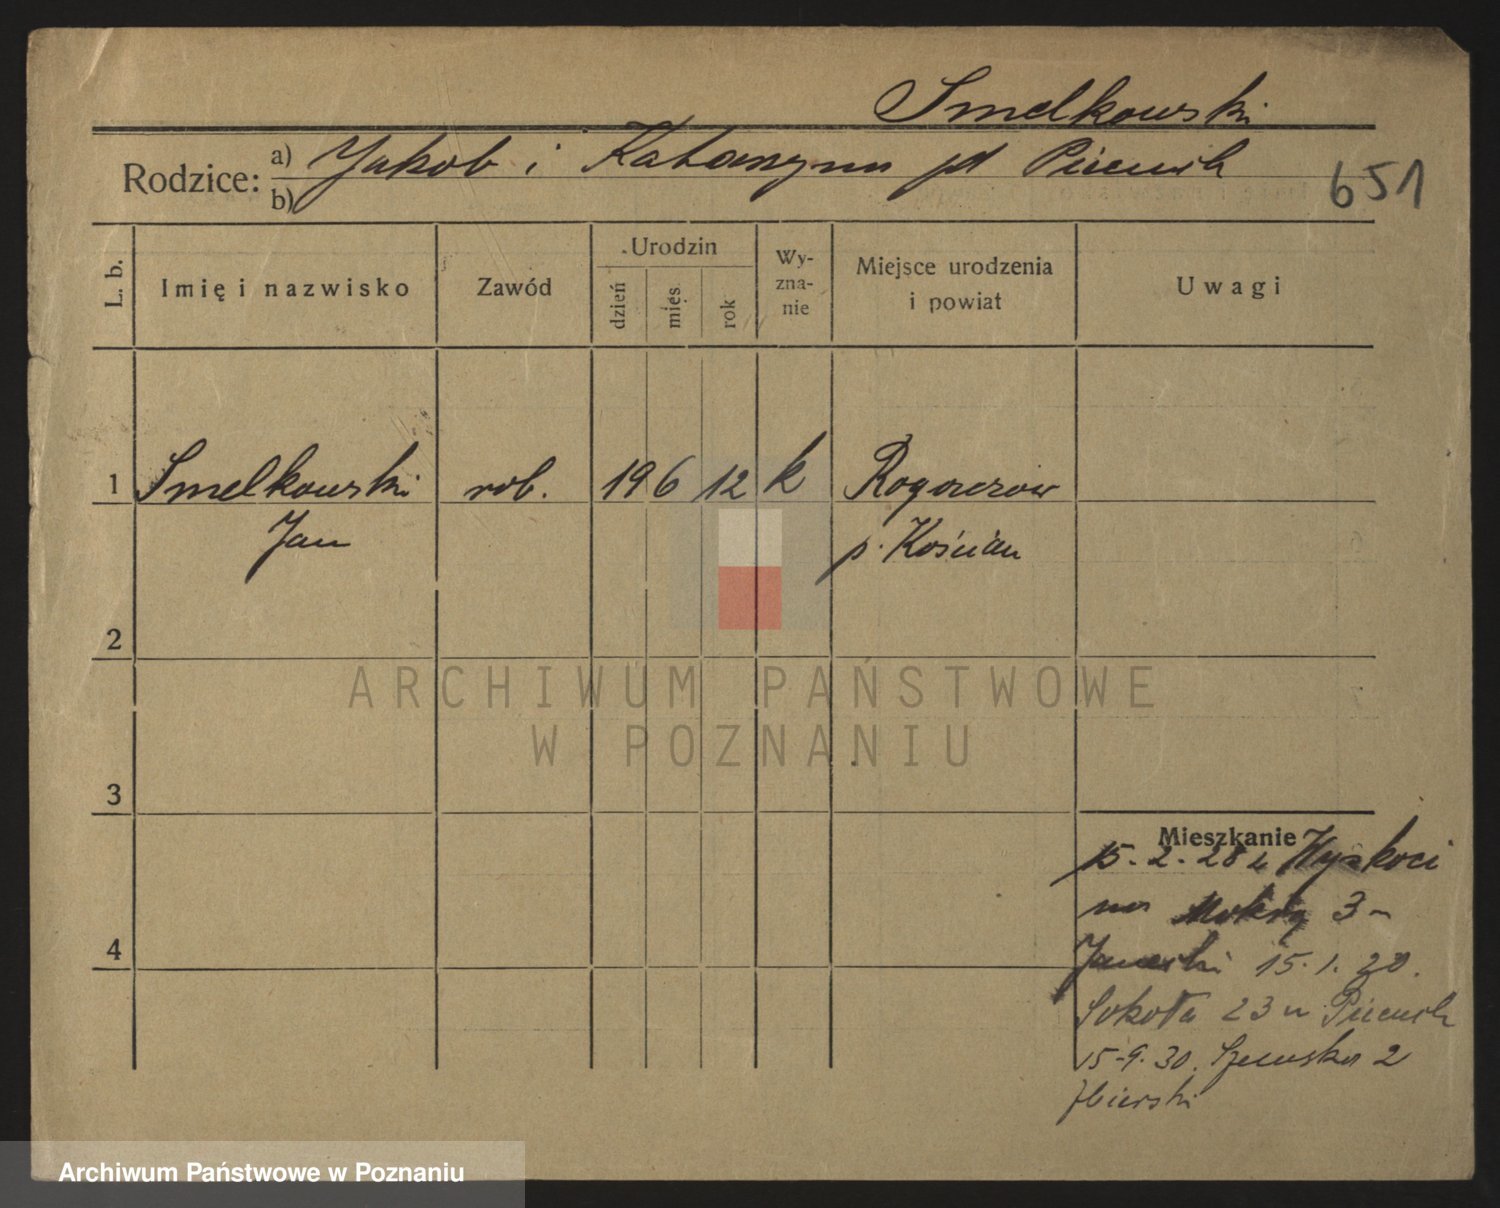 Smelkowski
Rodzice: a) Jakob i Katarzyna
b)
651
L. b.
Imię i nazwisko
Zawód
Urodzin
dzień
mieś
rok
Wy-
zna-
nie
Miejsce urodzenia
i powiat
Uwagi
1 Smelkowski rob. 19 6 12 k
Jan p. Kościan
2
ARCHIWUM PAŃSTWOWE
W POZNANIU
3
Mieszkanie
15.2.28 u
na Mokrą 3
15.1.
Sokoła 23 u
15.9.30. 2
Archiwum Państwowe w Poznaniu
4